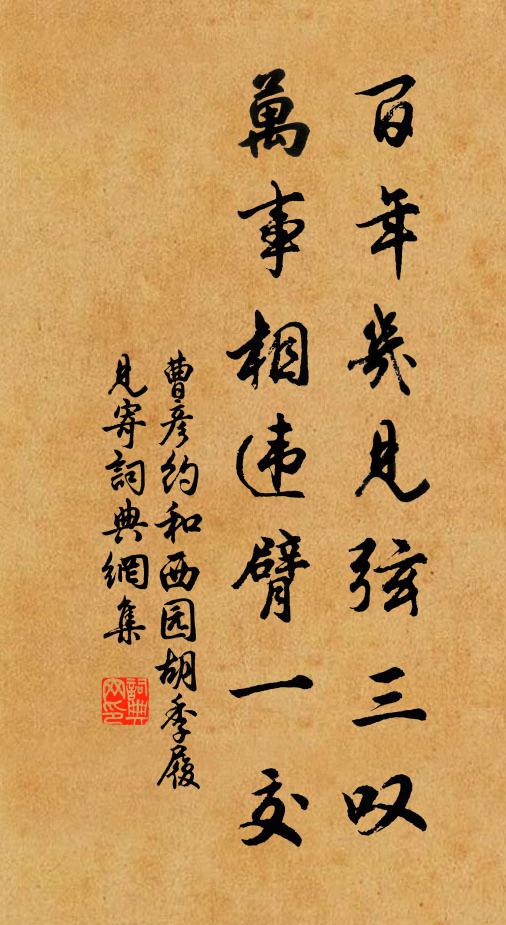 百年幾見弦三叹
萬事相违臂一交
曹彦约和西园胡季履
見寄詞典網集
詞典网印